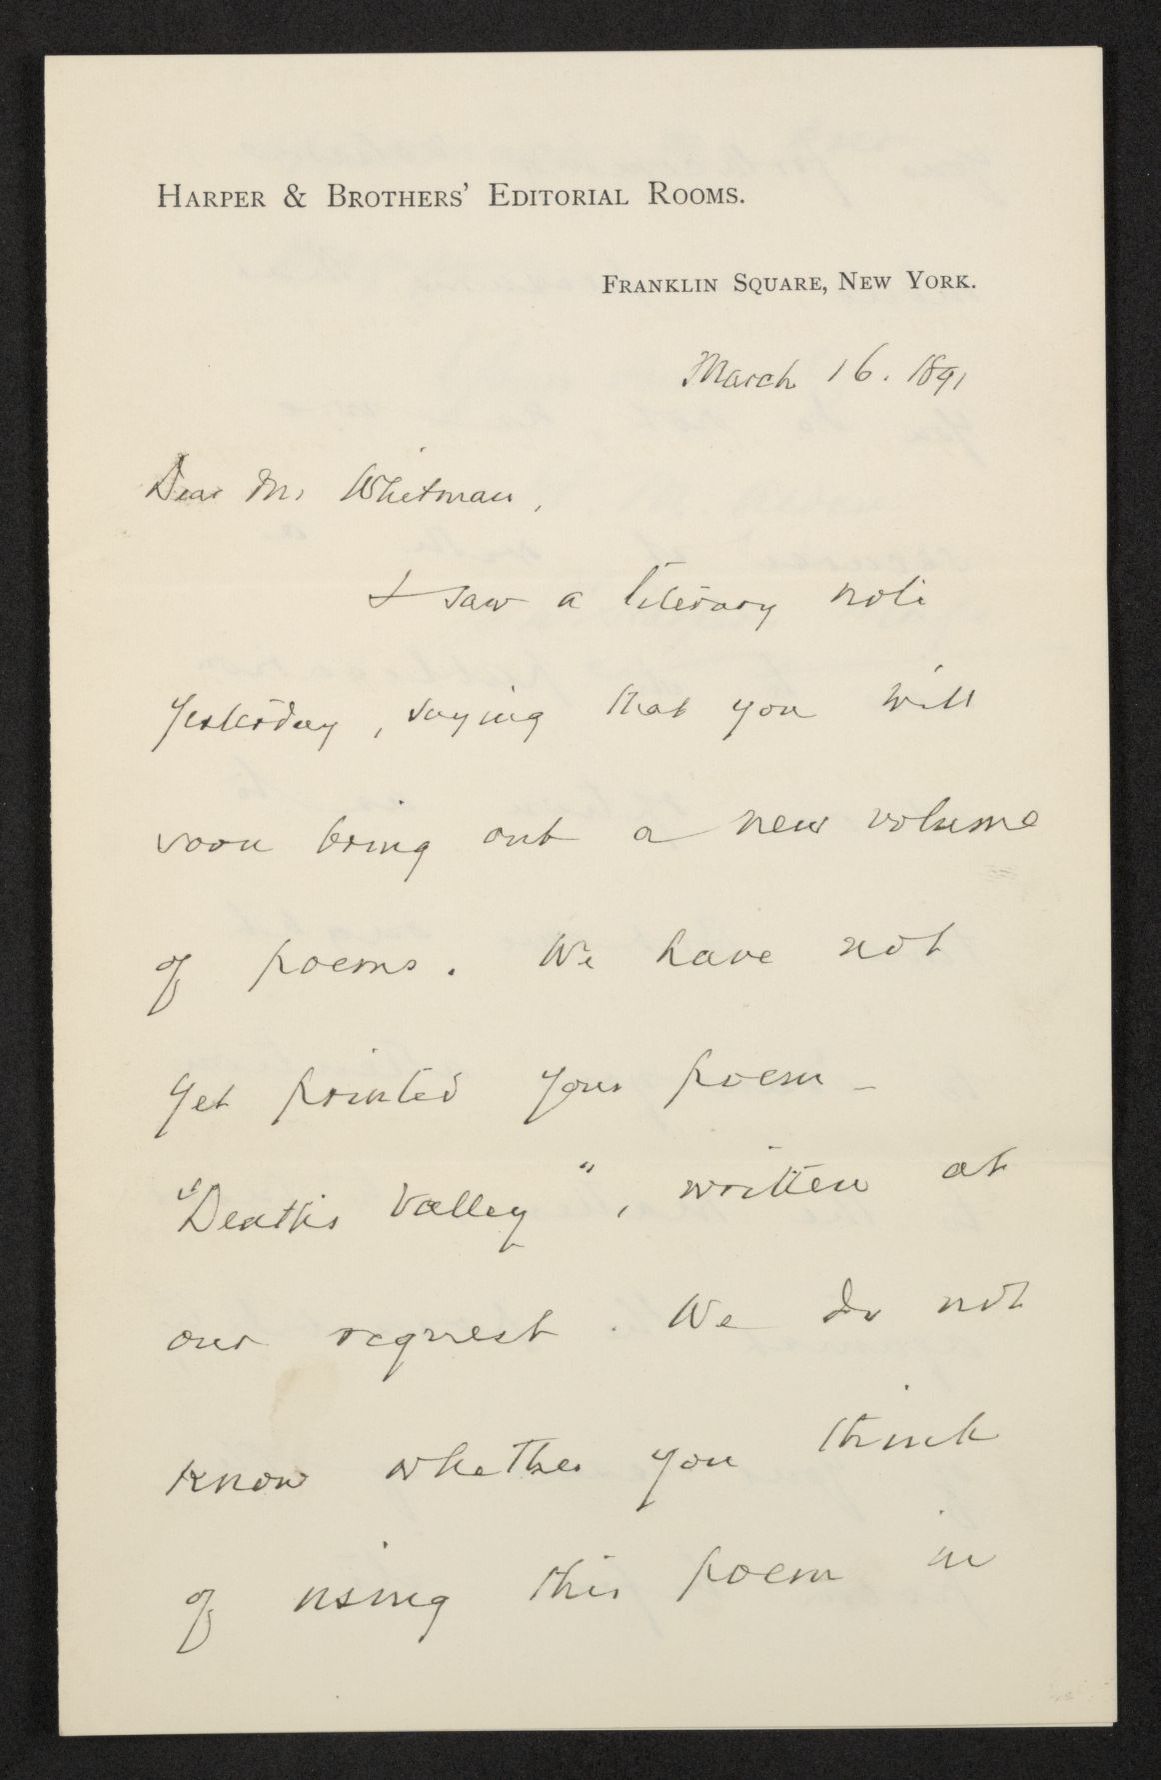 HARPER & BROTHERS' EDITORIAL ROOMS.
FRANKLIN SQUARE, NEW YORK.
March 16. 1891
Dear Mr Whitman,
I saw a literary note
yesterday, saying that you will
soon bring out a new volume
of poems. We have not
yet printed your poem –
"Death's Valley", written at
our request. We do not
know whether you think
of using this poem in